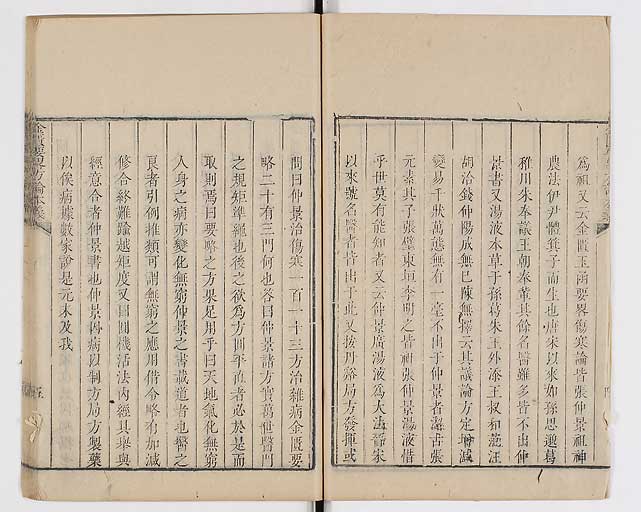 為祖又云金匱玉函要畧傷寒論皆張仲景祖神
農法伊尹體箕子而生也唐宋以來如孫思邈葛
稚川朱奉議王朝奉輩其餘名醫雖多皆不出仲
景書又湯液本草于孫葛朱王外添王叔和范汪
胡洽錢仲陽成無已陳無擇云其議論方定增減
變易千狀萬態無有一毫不出于仲景者潔古張
元素其子張璧東垣李明之皆祖張仲景湯液借
乎世莫有能知者又云仲景廣湯液為大法晉宋
以來號名醫者皆出于此又按丹谿局方發揮或
問曰仲景治傷寒一百一十三方治雜病金匱要
略二十有三門何也答曰仲景諸方實萬世醫門
之規矩準繩也後之欲為方圓平直者必於是而
取則焉曰要略之方果足用乎曰天地氣化無窮
人身之病亦變化無窮仲景之書載道者也醫之
良者引例推類可謂無窮之應用借令略有加減
修合終難踰越矩度又曰圓機活法內經具舉與
經意合者仲景書也仲景因病以制方局方製藥
以俟病據數家說是元末及我
金匱要略方論本義
五